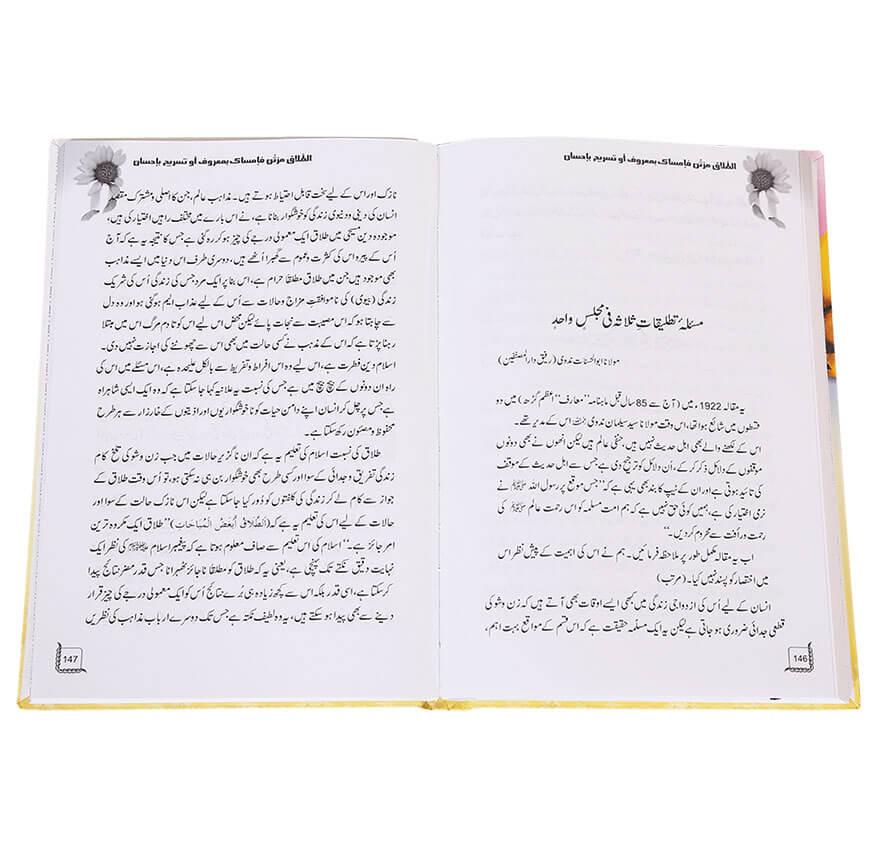 الطلاق مرتٰن فإمساك بمعروف أو تسريح بإحسان
مسئلہ تطلیقاتِ ثلاثہ فی مجلسٍ واحدٍ
مولانا ابوالحسنات ندوی (رفیق دارالمصنفین)
یہ مقالہ 1922ء میں (آج سے 85 سال قبل ماہنامہ ”معارف“ اعظم گڑھ) میں دو
قسطوں میں شائع ہوا تھا، اس وقت مولانا سید سلیمان ندوی رحمہ اللہ اس کے مدیر تھے۔
اس کے لکھنے والے بھی اہل حدیث نہیں ہیں، حنفی عالم ہیں لیکن انھوں نے بھی دونوں
موقفوں کے دلائل ذکر کرکے، اُن دلائل کو ترجیح دی ہے جس سے اہل حدیث کے موقف
کی تائید ہوتی ہے اور ان کے ٹیپ کا بند بھی یہی ہے کہ ”جس موقع پر رسول اللہ ﷺ نے
نرمی اختیار کی ہے، ہمیں کوئی حق نہیں ہے کہ ہم امت مسلمہ کو اس رحمت عالم ﷺ کی
رحمت ورأفت سے محروم کردیں۔“
اب یہ مقالہ مکمل طور پر ملاحظہ فرمائیں۔ ہم نے اس کی اہمیت کے پیش نظر اس
میں اختصار کو پسند نہیں کیا۔ (مرتب)
انسان کے لیے اُس کی ازدواجی زندگی میں کبھی ایسے اوقات بھی آتے ہیں کہ زن وشو کی
قطعی جدائی ضروری ہو جاتی ہے لیکن یہ ایک مسلّمہ حقیقت ہے کہ اس قسم کے مواقع بہت اہم،
146
الطلاق مرتٰن فإمساك بمعروف أو تسريح بإحسان
نازک اور اس کے لیے سخت قابل احتیاط ہوتے ہیں۔ مذاہب عالم، جن کا اصلی ومشترک مقصد
انسان کی دینی ودنیوی زندگی کو خوشگوار بنانا ہے، نے اس بارے میں مختلف راہیں اختیار کی ہیں،
موجودہ دین مسیحی میں طلاق ایک معمولی درجے کی چیز ہوکر رہ گئی ہے جس کا نتیجہ یہ ہے کہ آج
اُس کے پیرو اس کی کثرت وعموم سے گھبرا اُٹھے ہیں، دوسری طرف اس دنیا میں ایسے مذاہب
بھی موجود ہیں جن میں طلاق مطلقاً حرام ہے، اس بنا پر ایک مرد جس کی زندگی اُس کی شریک
زندگی (بیوی) کی ناموافقتِ مزاج وحالات سے اُس کے لیے عذاب الیم ہوگئی ہو اور وہ دل
سے چاہتا ہو کہ اس مصیبت سے نجات پائے لیکن محض اس لیے اُس کو تادمِ مرگ اس میں مبتلا
رہنا پڑتا ہے کہ اس کے مذہب نے کسی حالت میں بھی اس سے چھوٹنے کی اجازت نہیں دی۔
اسلام دین فطرت ہے، اس لیے وہ اس افراط وتفریط سے بالکل علیحدہ ہے، اس مسئلے میں اس کی
راہ ان دونوں کے بیچ بیچ میں ہے جس کی نسبت یہ علانیہ کہا جاسکتا ہے کہ وہ ایک ایسی شاہراہ
ہے جس پر چل کر انسان اپنے دامنِ حیات کو ناخوشگواریوں اور اذیتوں کے خارزار سے ہر طرح
محفوظ ومصئون رکھ سکتا ہے۔
طلاق کی نسبت اسلام کی تعلیم یہ ہے کہ ان ناگزیر حالات میں جب زن وشو کی تلخ کام
زندگی تفریق وجدائی کے سوا اور کسی طرح بھی خوشگوار بن ہی نہ سکتی ہو، تو اُس وقت طلاق کے
جواز سے کام لے کر زندگی کی کلفتوں کو دُور کیا جاسکتا ہے لیکن اس نازک حالت کے سوا اور
حالات کے لیے اس کی تعلیم یہ ہے کہ (اَلطَّلَاقُ أَبْغَضُ الْمُبَاحَاتِ) ”طلاق ایک مکروہ ترین
امر جائز ہے۔“ اسلام کی اس تعلیم سے صاف معلوم ہوتا ہے کہ پیغمبر اسلام ﷺ کی نظر ایک
نہایت دقیق نکتے تک پہنچی ہے، یعنی یہ کہ طلاق کو مطلقاً ناجائز ٹھہرانا جس قدر مضر نتائج پیدا
کرسکتا ہے، اسی قدر بلکہ اس سے کچھ زیادہ ہی بُرے نتائج اُس کو ایک معمولی درجے کی چیز قرار
دینے سے بھی پیدا ہوسکتے ہیں، یہ وہ لطیف نکتہ ہے جس تک دوسرے ارباب مذاہب کی نظریں
147